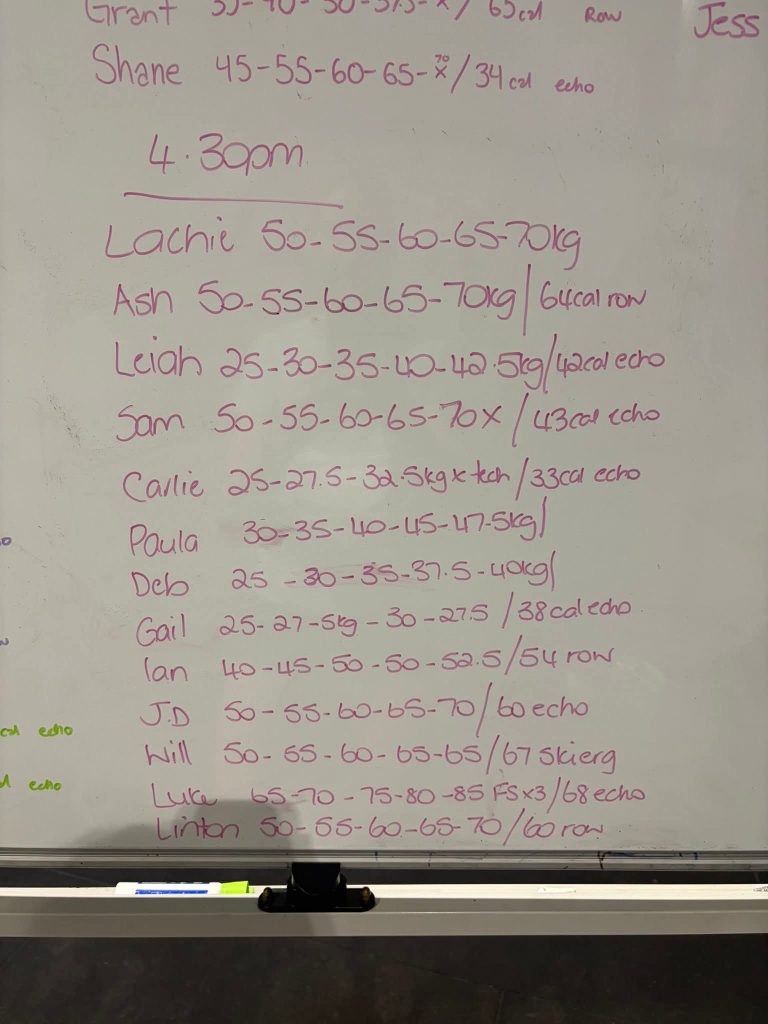 Grant 35-40-50-57.5-x/ 65cal Row
Jess
Shane 45-55-60-65-70x/34cal echo
4.30pm
Lachie 50-55-60-65-70kg
Ash 50-55-60-65-70kg/64cal row
Leigh 25-30-35-40-42.5kg/42cal echo
Sam 50-55-60-65-70x/43cal echo
Carlie 25-27.5-32.5kgx tech/33cal echo
Paula 30-35-40-45-47.5kg/
Deb 25-30-35-37.5-40kg/
Gail 25-27-5kg-30-27.5/38cal echo
Ian 40-45-50-50-52.5/54 row
J.D 50-55-60-65-70/60 echo
cal echo
Will 50-55-60-65-65/67 skierg
echo
Luke 65-70-75-80-85 FSx3/68 echo
Linton 50-55-60-65-70/60 row